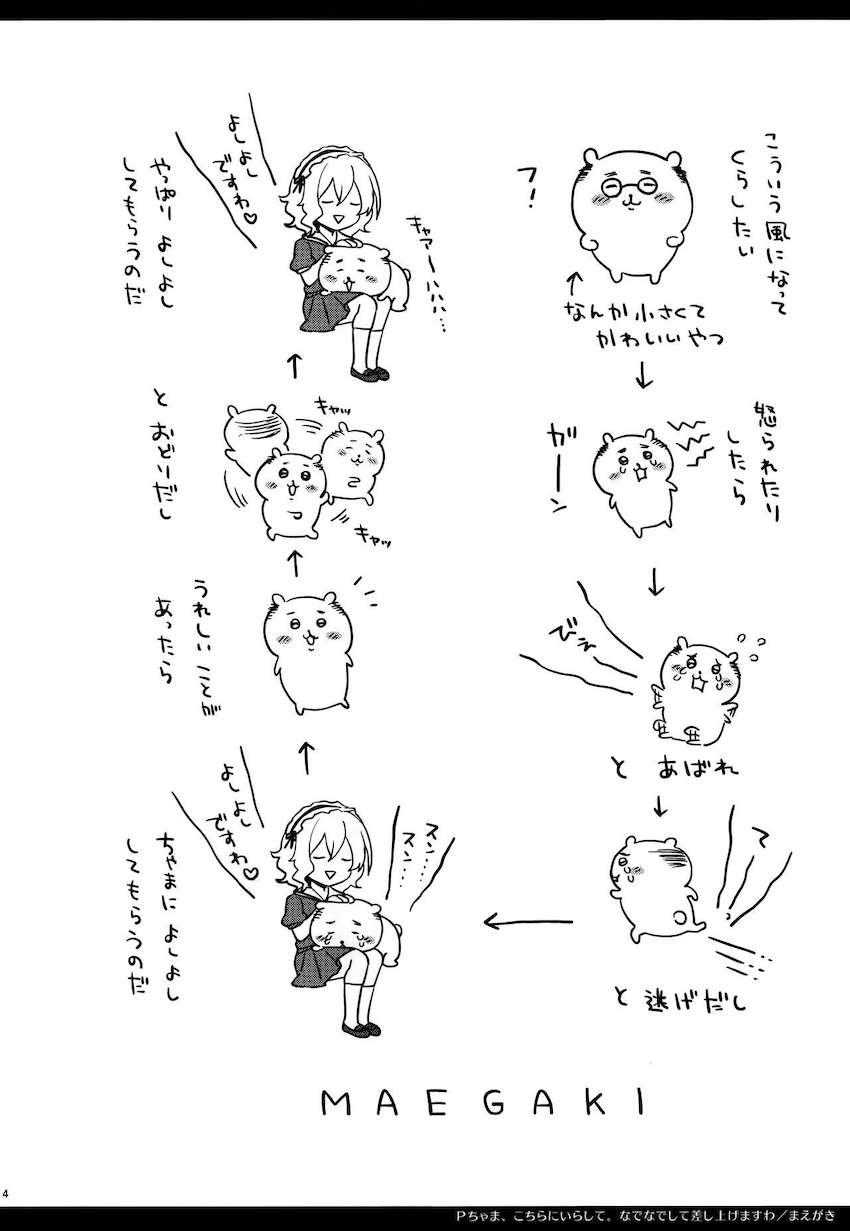 こういう風になって
くらしたい
フ!
↑
なんか小さくて
かわいいやつ
怒られたり
したら
ガーン
びえ
と あばれ
て
と 逃げだし
スン……
スン……
よしよし
ですわ♡
ちゃまに よしよし
してもらうのだ
うれしい ことが
あったら
キャッ
キャッ
と おどりだし
キャアーハハハ…
よしよし
ですわ♡
やっぱり よしよし
してもらうのだ
MAEGAKI
4
Pちゃま、こちらにいらして。なでなでして差し上げますわ/まえがき